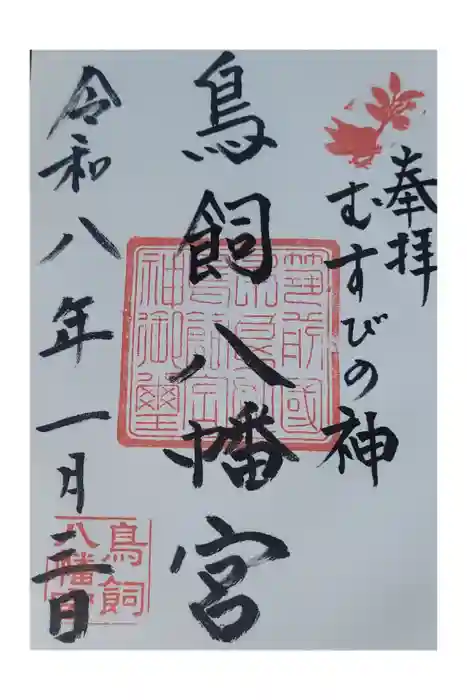 奉拝
むすびの神
鳥飼八幡宮
令和八年一月三日
筑前國
神御璽
鳥飼
八幡宮